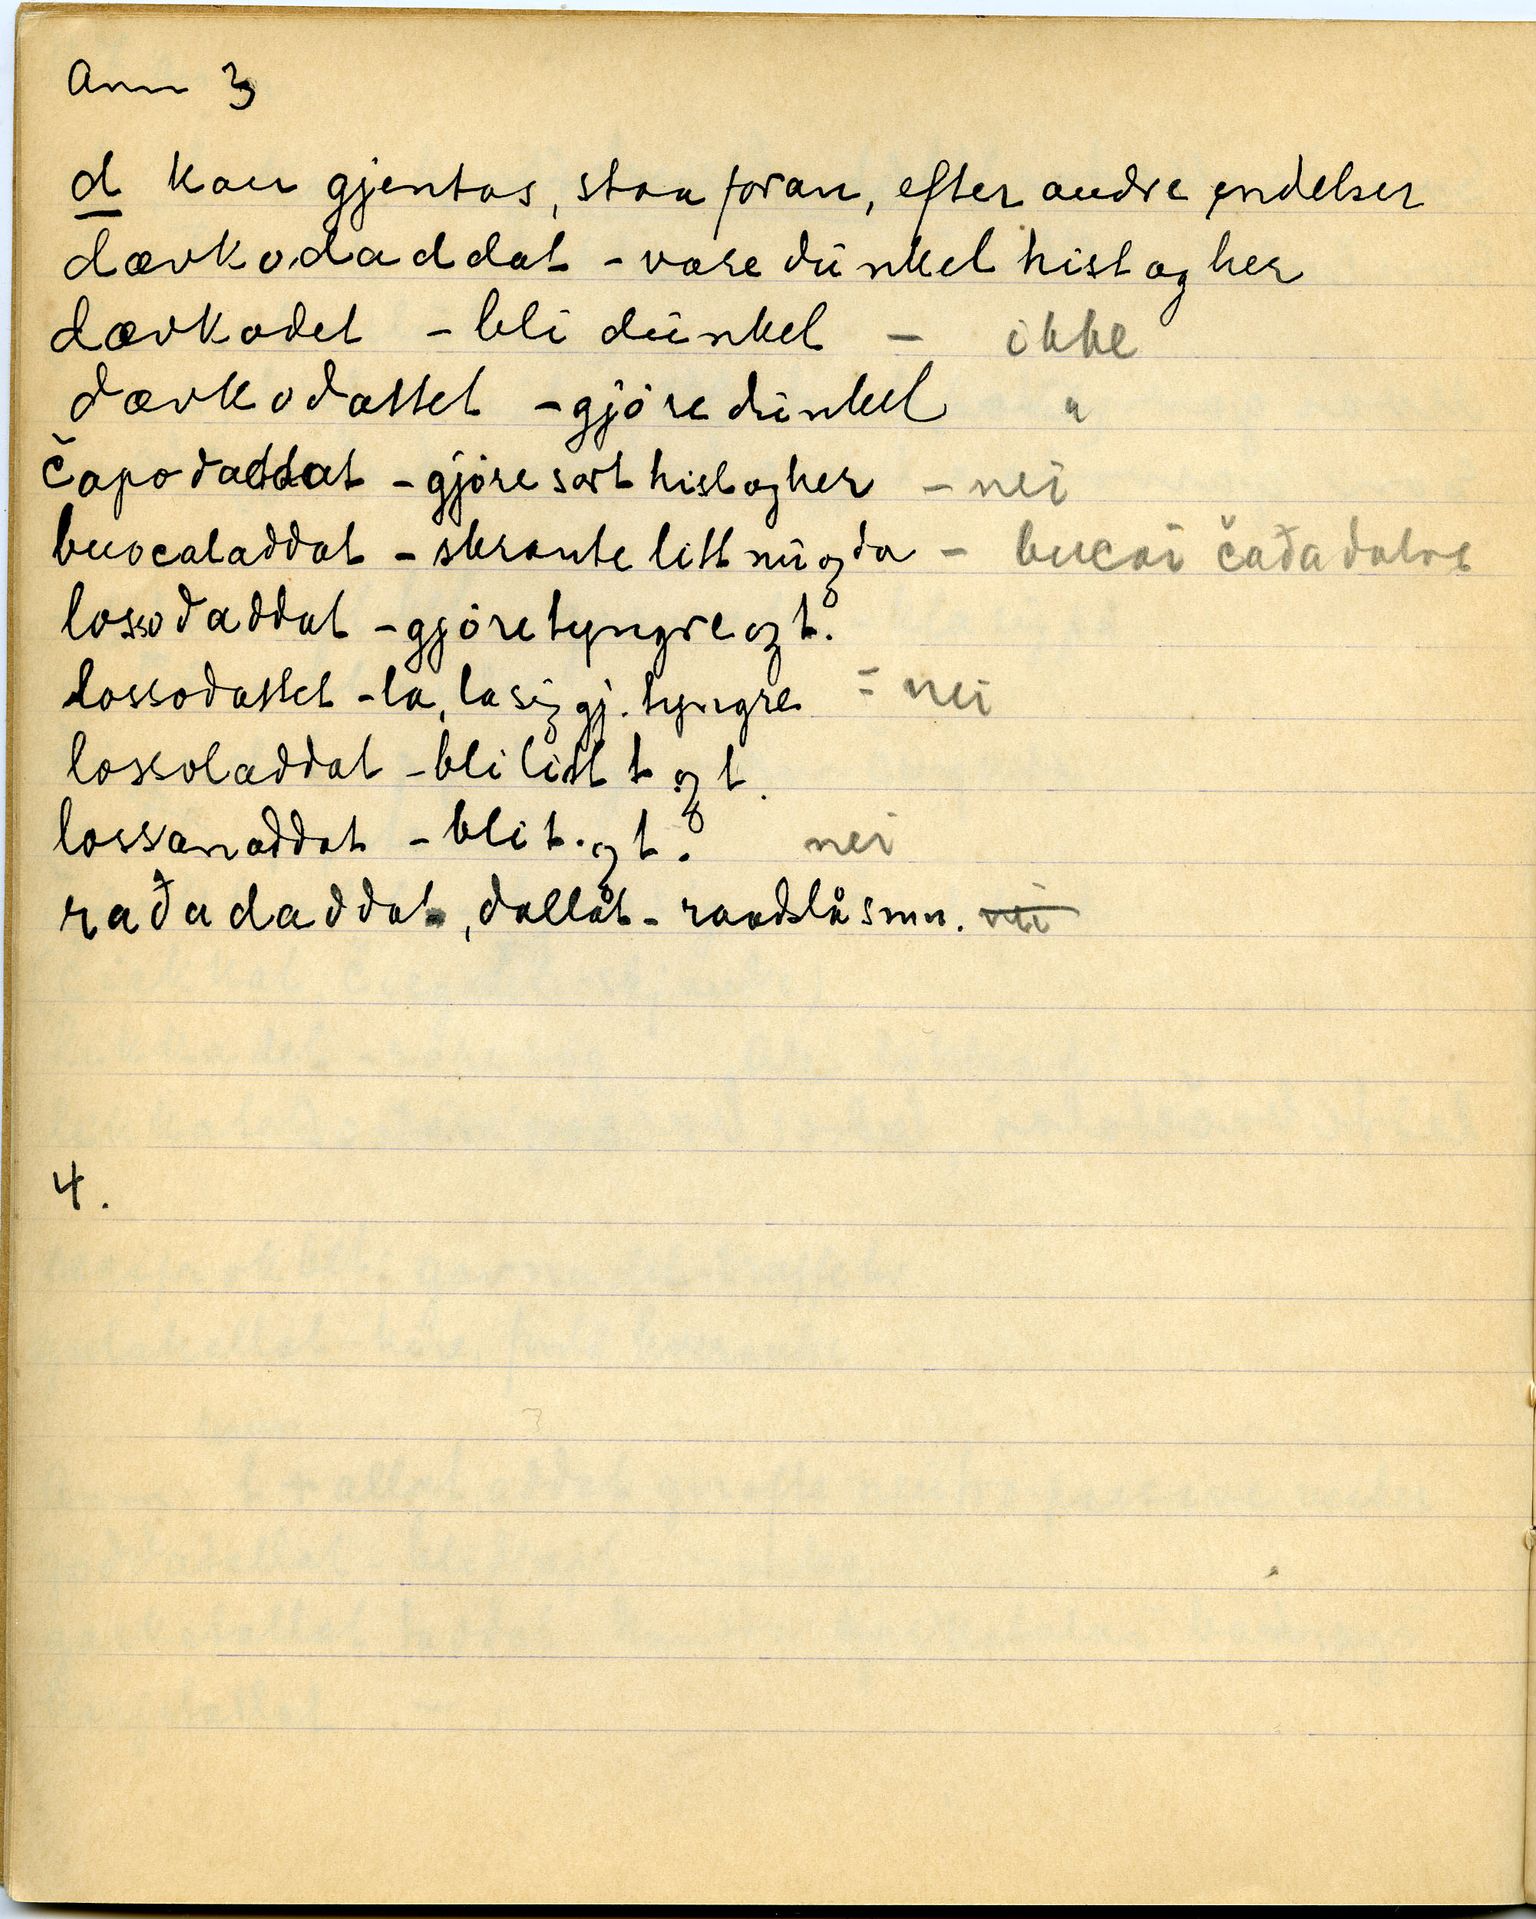 Anm 3
d kan gjentas, staa foran, efter andre endelser
dævkodaddat - være dunkel hist og her
dævkodet - bli dunkel - ikke
dævkodattet - gjøre dunkel "
čapodaddat - gjøre sort hist og her - nei
buocaladdat - skrante litt nu og da - bucai čađadalat
lossodaddat - gjøre tyngre og t.
lossodattet - la, la sig gj. tyngre = nei
lossoladdat - bli litt t og t.
lossanaddat - bli t. og t. nei
rađađaddat, dallat - raadslå smn. nei
4.